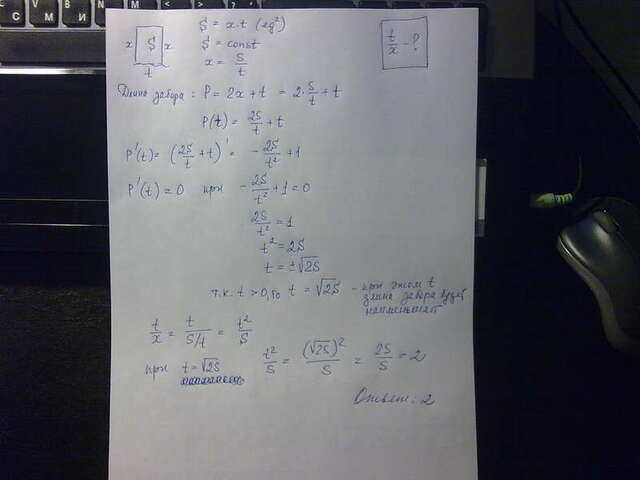 x S x
t
S = x·t (ед²)
S = const
x = S/t
t/x - ?
Длина забора: P = 2x + t = 2·S/t + t
P(t) = 2S/t + t
P'(t) = (2S/t + t)' = - 2S/t² + 1
P'(t) = 0 при - 2S/t² + 1 = 0
2S/t² = 1
t² = 2S
t = ±√2S
т.к. t > 0, то t = √2S - при этом t
длина забора будет
наименьшая
t/x = t/(S/t) = t²/S
при t = √2S
t²/S = (√2S)²/S = 2S/S = 2
Ответ: 2